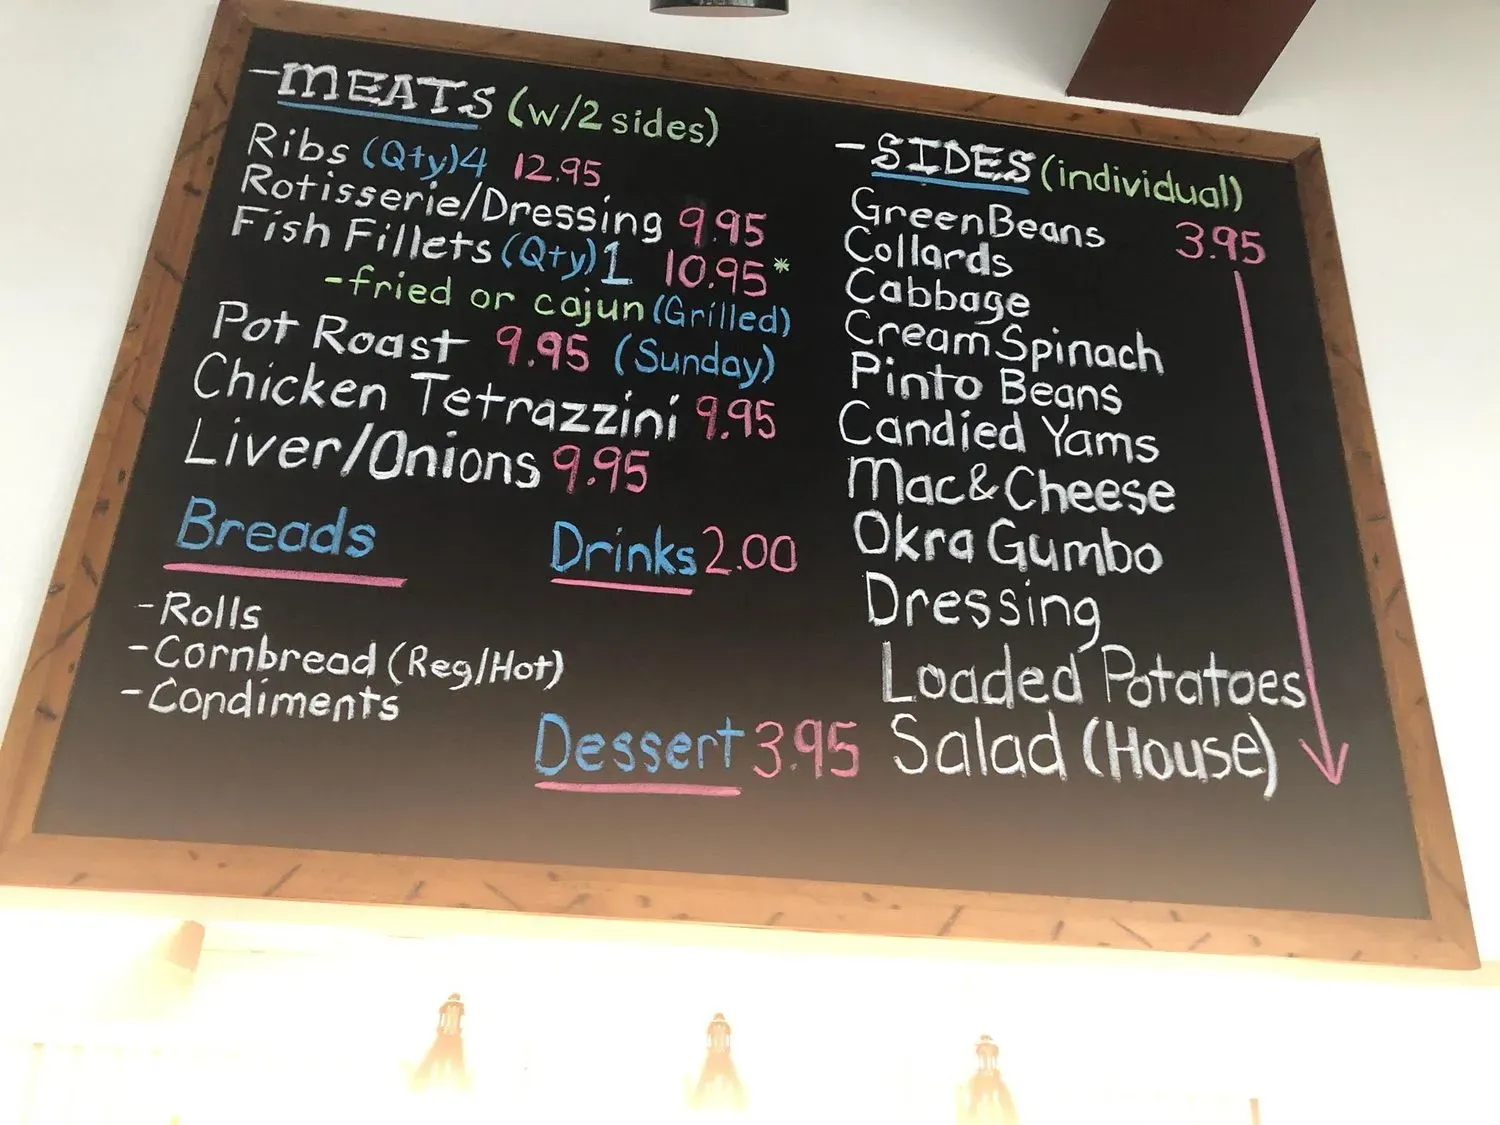 -MEATS (w/2 sides)
Ribs (Qty)4 12.95
Rotisserie/Dressing 9.95
Fish Fillets (Qty)1 10.95*
-fried or cajun (Grilled)
Pot Roast 9.95 (Sunday)
Chicken Tetrazzini 9.95
Liver/Onions 9.95
Breads
-Rolls
-Cornbread (Reg/Hot)
-Condiments
Drinks 2.00
Dessert 3.95
-SIDES (individual)
Green Beans 3.95
Collards
Cabbage
Cream Spinach
Pinto Beans
Candied Yams
Mac & Cheese
Okra Gumbo
Dressing
Loaded Potatoes
Salad (House)